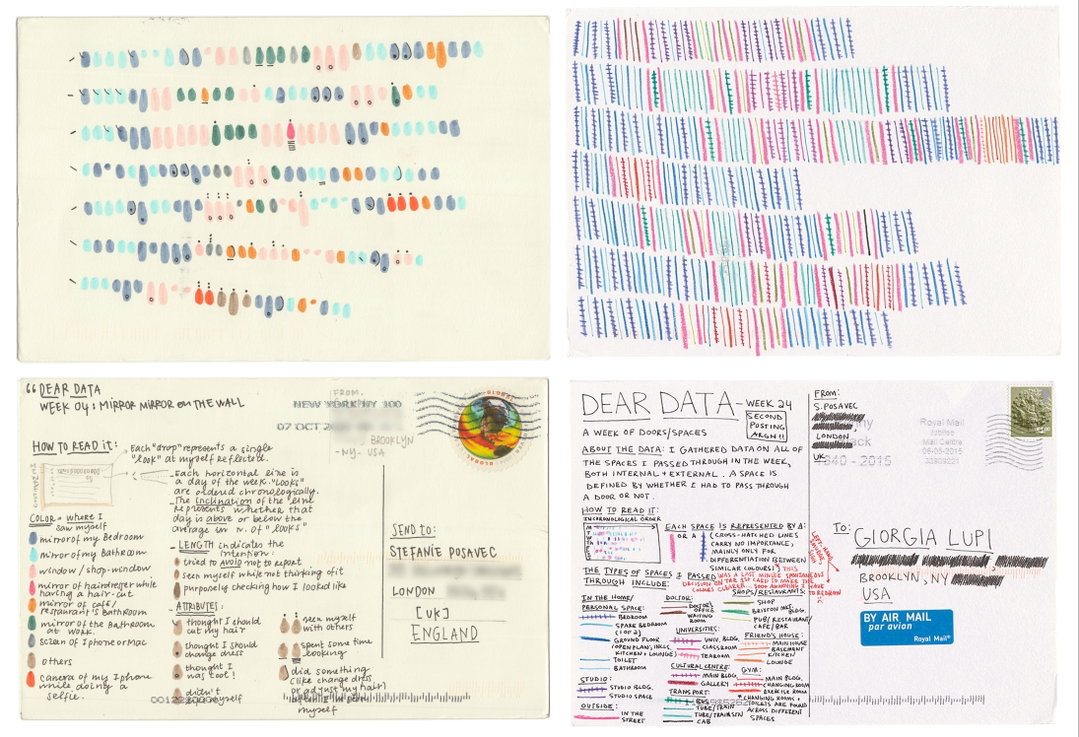 "DEAR DATA
WEEK 04: MIRROR MIRROR on THE WALL
FROM,
NEW YORK NY 100
07 OCT 20
BROOKLYN
-NY- USA
GLOBAL
HOW TO READ it:
Each "drop" represents a single
"look" at myself reflected.
Each horizontal line is
a day of the week. "LOOKS"
are ordered chronologically.
The inclination of the line
represents whether that
day is above or below the
average in n. of "looks"
COLOR = where I
saw myself
mirror of my Bedroom
mirror of my Bathroom
window / shop-window
mirror of hairdresser while
having a hair-cut
mirror of café/
restaurant's Bathroom
mirror of the Bathroom
at work.
screen of Iphone or Mac
others
camera of my Iphone
while doing a
selfie.
LENGTH indicates the
intention:
tried to AVOID not to report
seen myself while not thinking of it
purposely checking how I looked like
ATTRIBUTES:
thought I should
cut my hair
thought I should
change dress
thought I
was
didn't
myself
seen myself
with others
spent some time
looking
did something
(like change dress
or adjust my hair)
myself
SEND to:
STEFANIE POSAVEC
LONDON
[UK]
ENGLAND
DEAR DATA - WEEK 24
SECOND
POSTING
ARGH!!
A WEEK OF DOORS/SPACES
ABOUT THE DATA: I GATHERED DATA ON ALL OF
THE SPACES I PASSED THROUGH IN THE WEEK,
BOTH INTERNAL + EXTERNAL. A SPACE IS
DEFINED BY WHETHER I HAD TO PASS THROUGH
A DOOR OR NOT.
HOW TO READ IT:
IN CHRONOLOGICAL ORDER
EACH SPACE IS REPRESENTED BY A:
OR A
(CROSS-HATCHED LINES
CARRY NO IMPORTANCE,
MAINLY ONLY FOR
DIFFERENTIATION BETWEEN
SIMILAR COLOURS!) THIS
WAS A LAST MINUTE SPONTANEOUS
DECISION ON THE 1ST CARD TO MAKE THE
COLOURS CLEARER. SOOO ANNOYING I HAVE
TO REDRAW
THE TYPES OF SPACES I PASSED
THROUGH INCLUDE:
IN THE HOME/
PERSONAL SPACE:
BEDROOM
SPARE BEDROOM
(1 OF 2)
GROUND FLOOR
(OPEN PLAN, INCLS
KITCHEN + LOUNGE)
TOILET
BATHROOM
STUDIO:
STUDIO BLDG.
STUDIO SPACE
OUTSIDE:
IN THE
STREET
DOCTOR:
DOCTOR'S
OFFICE
WAITING
ROOM
UNIVERSITIES:
UNIV. BLDG.
CLASSROOM
TEAROOM
CULTURAL CENTRE:
MAIN BLDG.
GALLERY
TRANSPORT:
BUS
TUBE/TRAIN
TUBE/TRAIN STN
CAB
SHOPS/RESTAURANTS:
SHOP
BLDG.
PUB/RESTAURANT/
CAFE/BAR
FRIENDS HOUSE:
MAIN HOUSE
BASEMENT
KITCHEN/
LOUNGE
GYM:
MAIN BLDG.
CHANGING ROOM
EXERCISE ROOM
* CHANGING ROOMS +
TOILETS ARE FOUND
ACROSS DIFFERENT
SPACES
FROM:
S. POSAVEC
LONDON
UK
1840-2015
Royal Mail
Jubilee
Mail Centre
06-05-2015
TO: GIORGIA LUPI
BROOKLYN, NY
USA
BY AIR MAIL
par avion
Royal Mail®